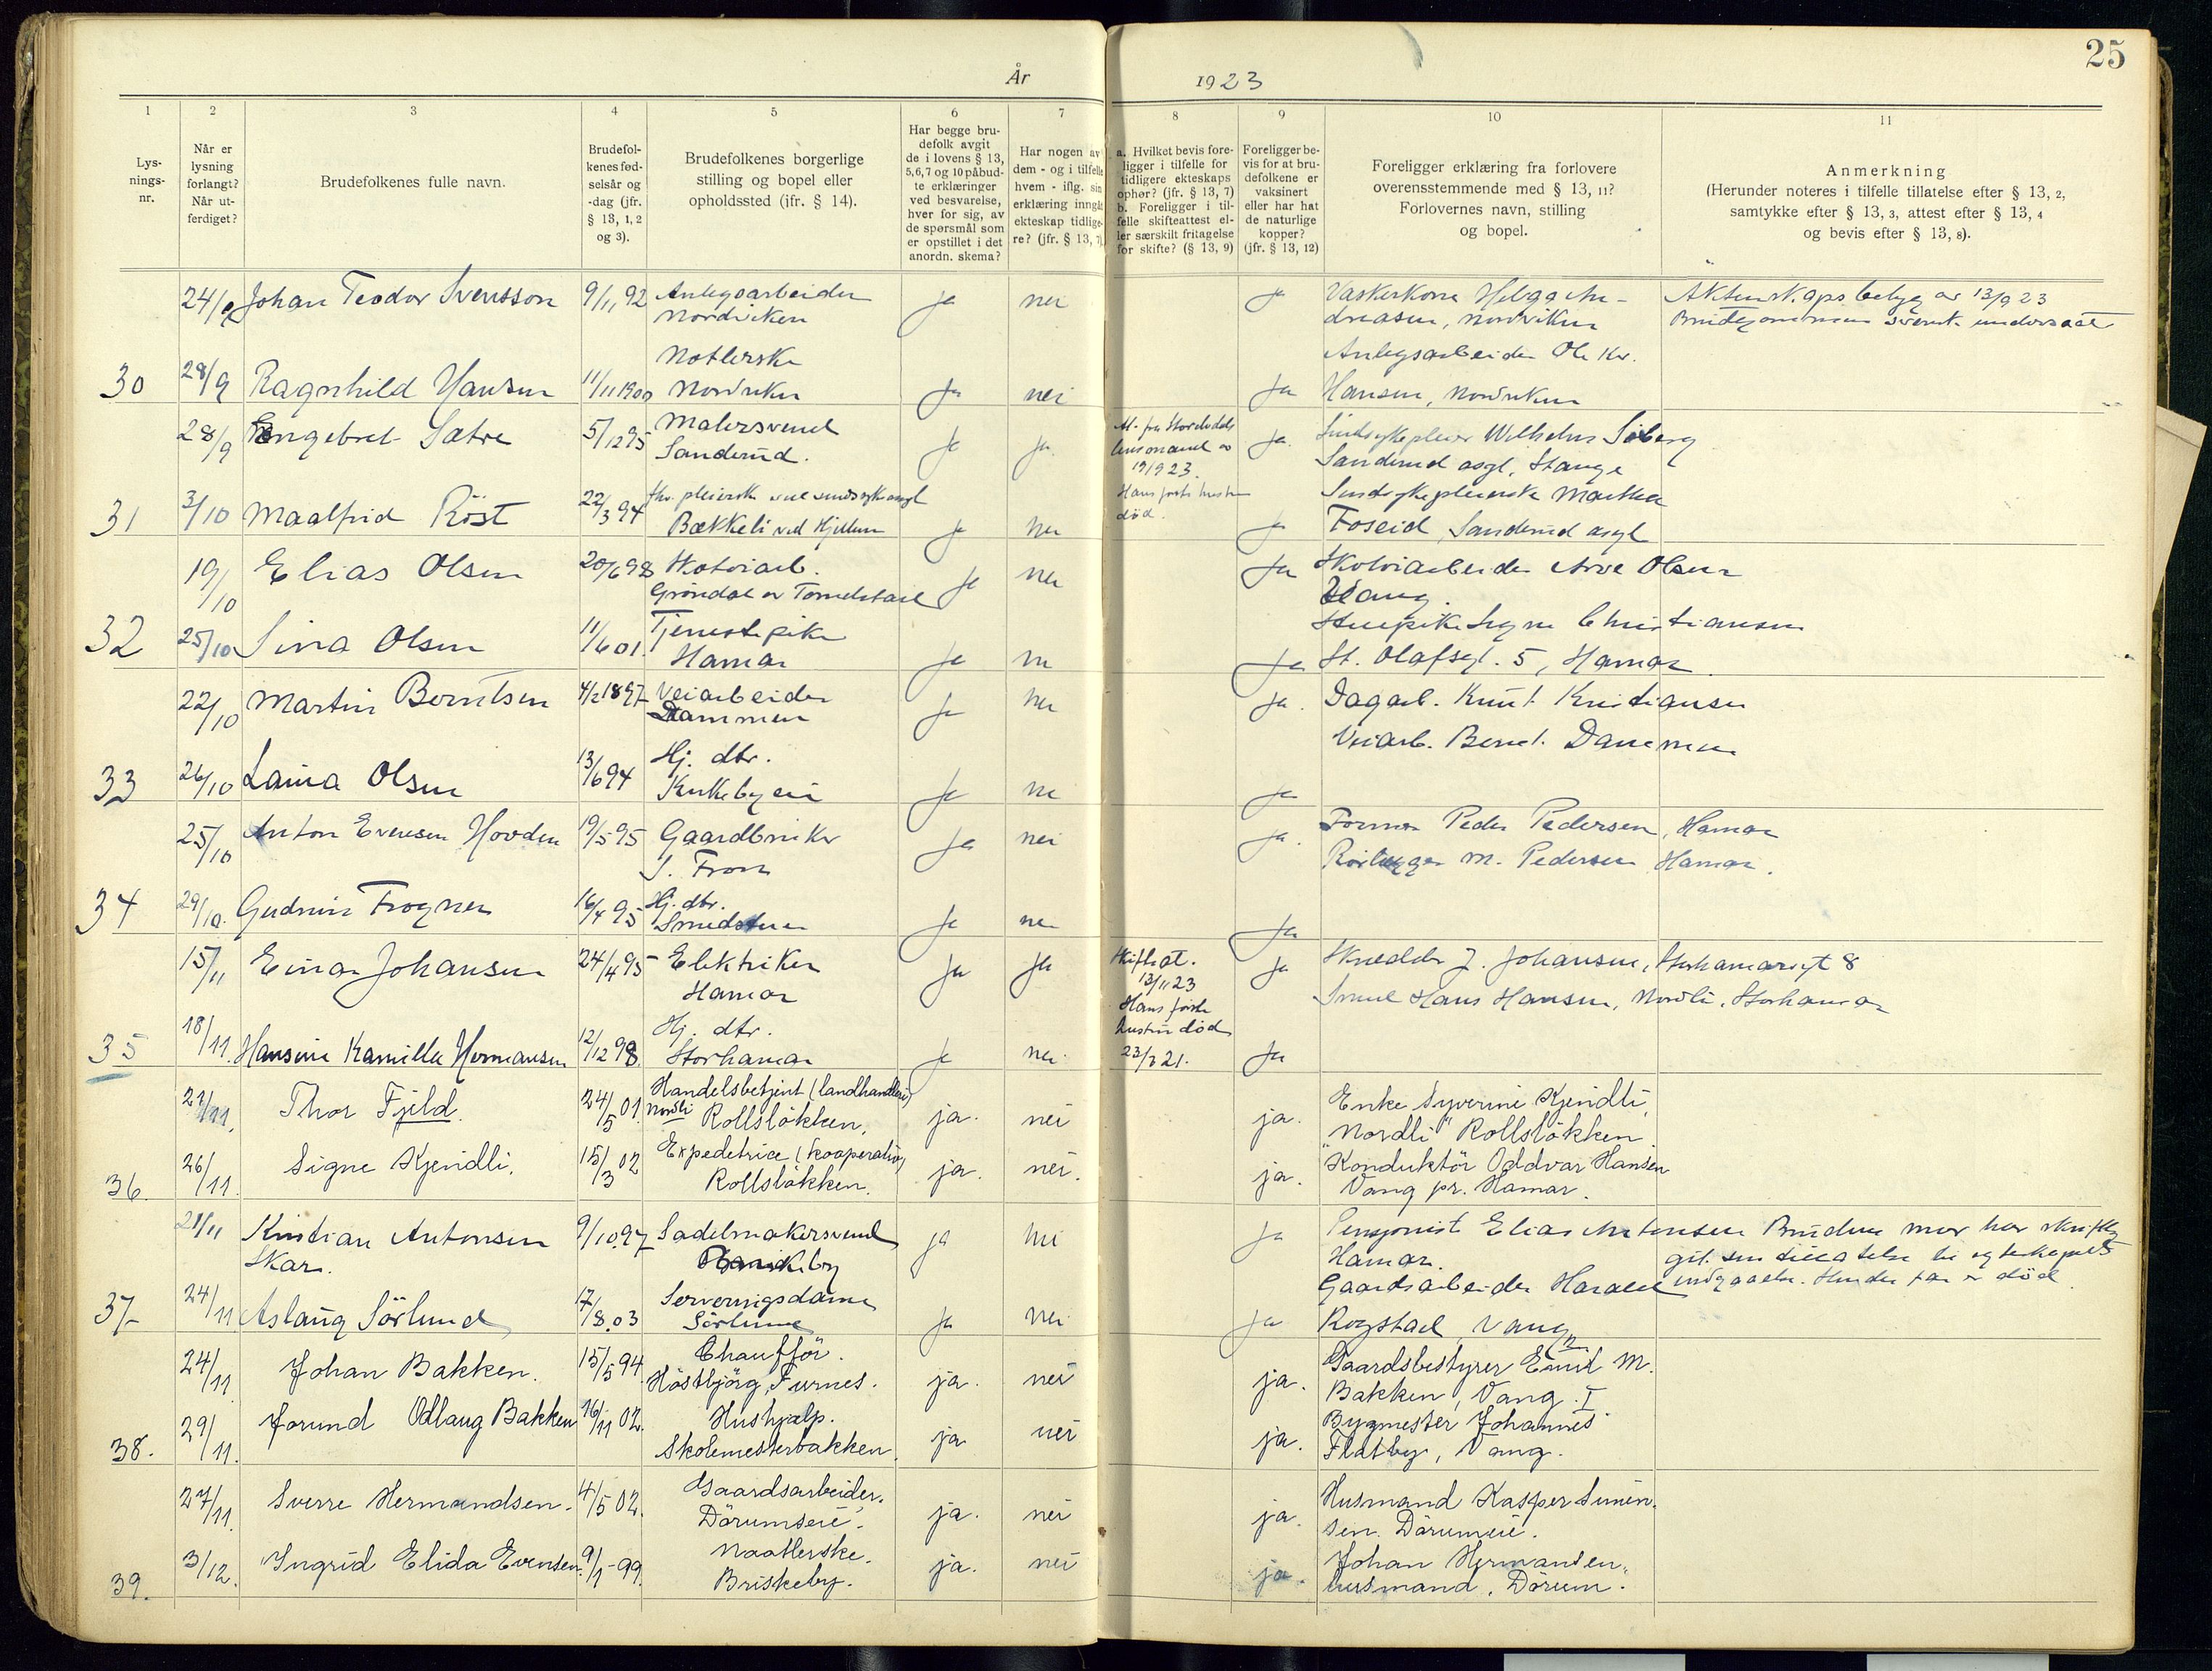 25
År 1923
1 2 3 4 5 6 7 8 9 10 11
Lys-
nings-
nr.
Når er
lysning
forlangt?
Når ut-
ferdiget?
Brudefolkenes fulle navn.
Brudefol-
kenes fød-
selsår og
-dag (jfr.
§ 13, 1, 2
og 3).
Brudefolkenes borgerlige
stilling og bopel eller
opholdssted (jfr. § 14).
Har begge bru-
defolk avgit
de i lovens § 13,
5, 6, 7 og 10 påbud-
te erklæringer
ved besvarelse,
hver for sig, av
de spørsmål som
er opstillet i det
anordn. skema?
Har nogen av
dem - og i tilfelle
hvem - iflg. sin
erklæring inngåt
ekteskap tidlige-
re? (jfr. § 13, 7)
a. Hvilket bevis fore-
ligger i tilfelle for
tidligere ekteskaps
ophør? (jfr. § 13, 7)
b. Foreligger i til-
felle skifteattest el-
ler særskilt fritagelse
for skifte? (§ 13, 9)
Foreligger be-
vis for at bru-
defolkene er
vaksinert
eller har hat
de naturlige
kopper?
(jfr. § 13, 12)
Foreligger erklæring fra forlovere
overensstemmende med § 13, 11?
Forlovernes navn, stilling
og bopel.
Anmerkning
(Herunder noteres i tilfelle tillatelse efter § 13, 2,
samtykke efter § 13, 3, attest efter § 13, 4
og bevis efter § 13, 8).
24/9 Johan Teodor Svensson 9/11 92 Anlegsarbeider ja nei ja Vaskerkone Helga An-
Nordviken dreasen, Nordviken
13/9 23
Brudgommen svensk undersaat
Notlerske Anlegsarbeider Ole Kr.
30 28/9 Ragnhild Hansen 11/11 1900 Nordviken ja nei ja Hansen, Nordviken
28/9 Engebret Sætre 5/12 95 Malersvend ja ja ja. Sindsykepleier Wilhelm Siberg
Sanderud. Sanderud asyl, Stange
Hans første hustru
død.
31 3/10 Maalfrid Röst 22/3 94 Sindsykepleierske Martha
Bækkeli ved Hjellum ja nei ja Foseid, Sanderud asyl
19/10 Elias Olsen 20/6 98 Skotöiarb. ja nei ja Skotöiarbeider Arve Olsen
Gröndal av Tommelstad Vang.
32 25/10 Sina Olsen 11/6 01 Tjenestepike Stuepike Signe Christiansen
Hamar ja nei ja St. Olafsgt. 5, Hamar
22/10 Martin Berntsen 4/2 1897 Veiarbeider ja nei ja. Dagarb. Knut Kristiansen
Dammen Veiarb. Bernt. Dammen
33 26/10 Laura Olsen 13/6 94 Hj. dtr.
ja nei ja
25/10 Anton Evensen Hovden 19/5 95 Gaardbruker ja nei ja. Former Peder Pedersen, Hamar
S. Fron Rörlegger M. Pedersen Hamar.
34 29/10. Gudrun Frogner 16/4 95 Hj. dtr.
Smedstuen ja nei ja
15/11 Einar Johansen 24/4 95 Elektriker ja ja Skifteat. ja Skredder J. Johansen, Storhamargt 8
Hamar 13/11 23 Smed Hans Hansen, Nordli, Storhamar
Hans første
hustru död
23/3 21.
35 18/11. Hansine Kamilla Hermansen 12/12 98 Hj. dtr.
Storhamar ja nei. ja
21/11. Thor Fjeld. 24/5 01. Handelsbetjent (landhandleri) ja. nei ja. Enke Syverine Kjendli,
Nordli Rollslökken, "Nordli" Rollslökken.
36. 26/11. Signe Kjendli. 15/3 02 Expeditrice (kooperativ) ja. nei. ja. Konduktör Oddvar Hansen
Rollslökken. Vang pr. Hamar.
21/11 Kristian Antonsen 9/10.97 Sadelmakersvend ja nei ja Pensjonist Elias Antonsen Brudens mor har skriftlig
Skar. Hamar. git sin tillatelse til egteskapets
indgaaelse. Hendes far er död.
Gaardsarbeider Harald
37 24/11 Aslaug Sörlund 17/8.03 Serveringsdame
Sörlund ja nei ja Rogstad, Vang
24/11 Johan Bakken. 15/5 94 Chauffför. ja. nei ja. Gaardsbestyrer Emil M.
Höstbjörg, Furnes. Bakken, Vang. I
38. 29/11. Jorund Odlaug Bakken 16/11 02. Hushjælp. ja nei ja. Bygmester Johannes
Skolemesterbakken. Flatby, Vang.
27/11. Sverre Hermandsen. 4/5 02. Gaardsarbeider. ja. nei ja. Husmand Kasper Simen-
Dörumseie. sen. Dörumeie.
39. 3/12. Ingrid Elida Evensen. 9/1-99. Naatlerske. ja. nei ja. Johan Hermansen,
Briskeby. husmand, Dörum.